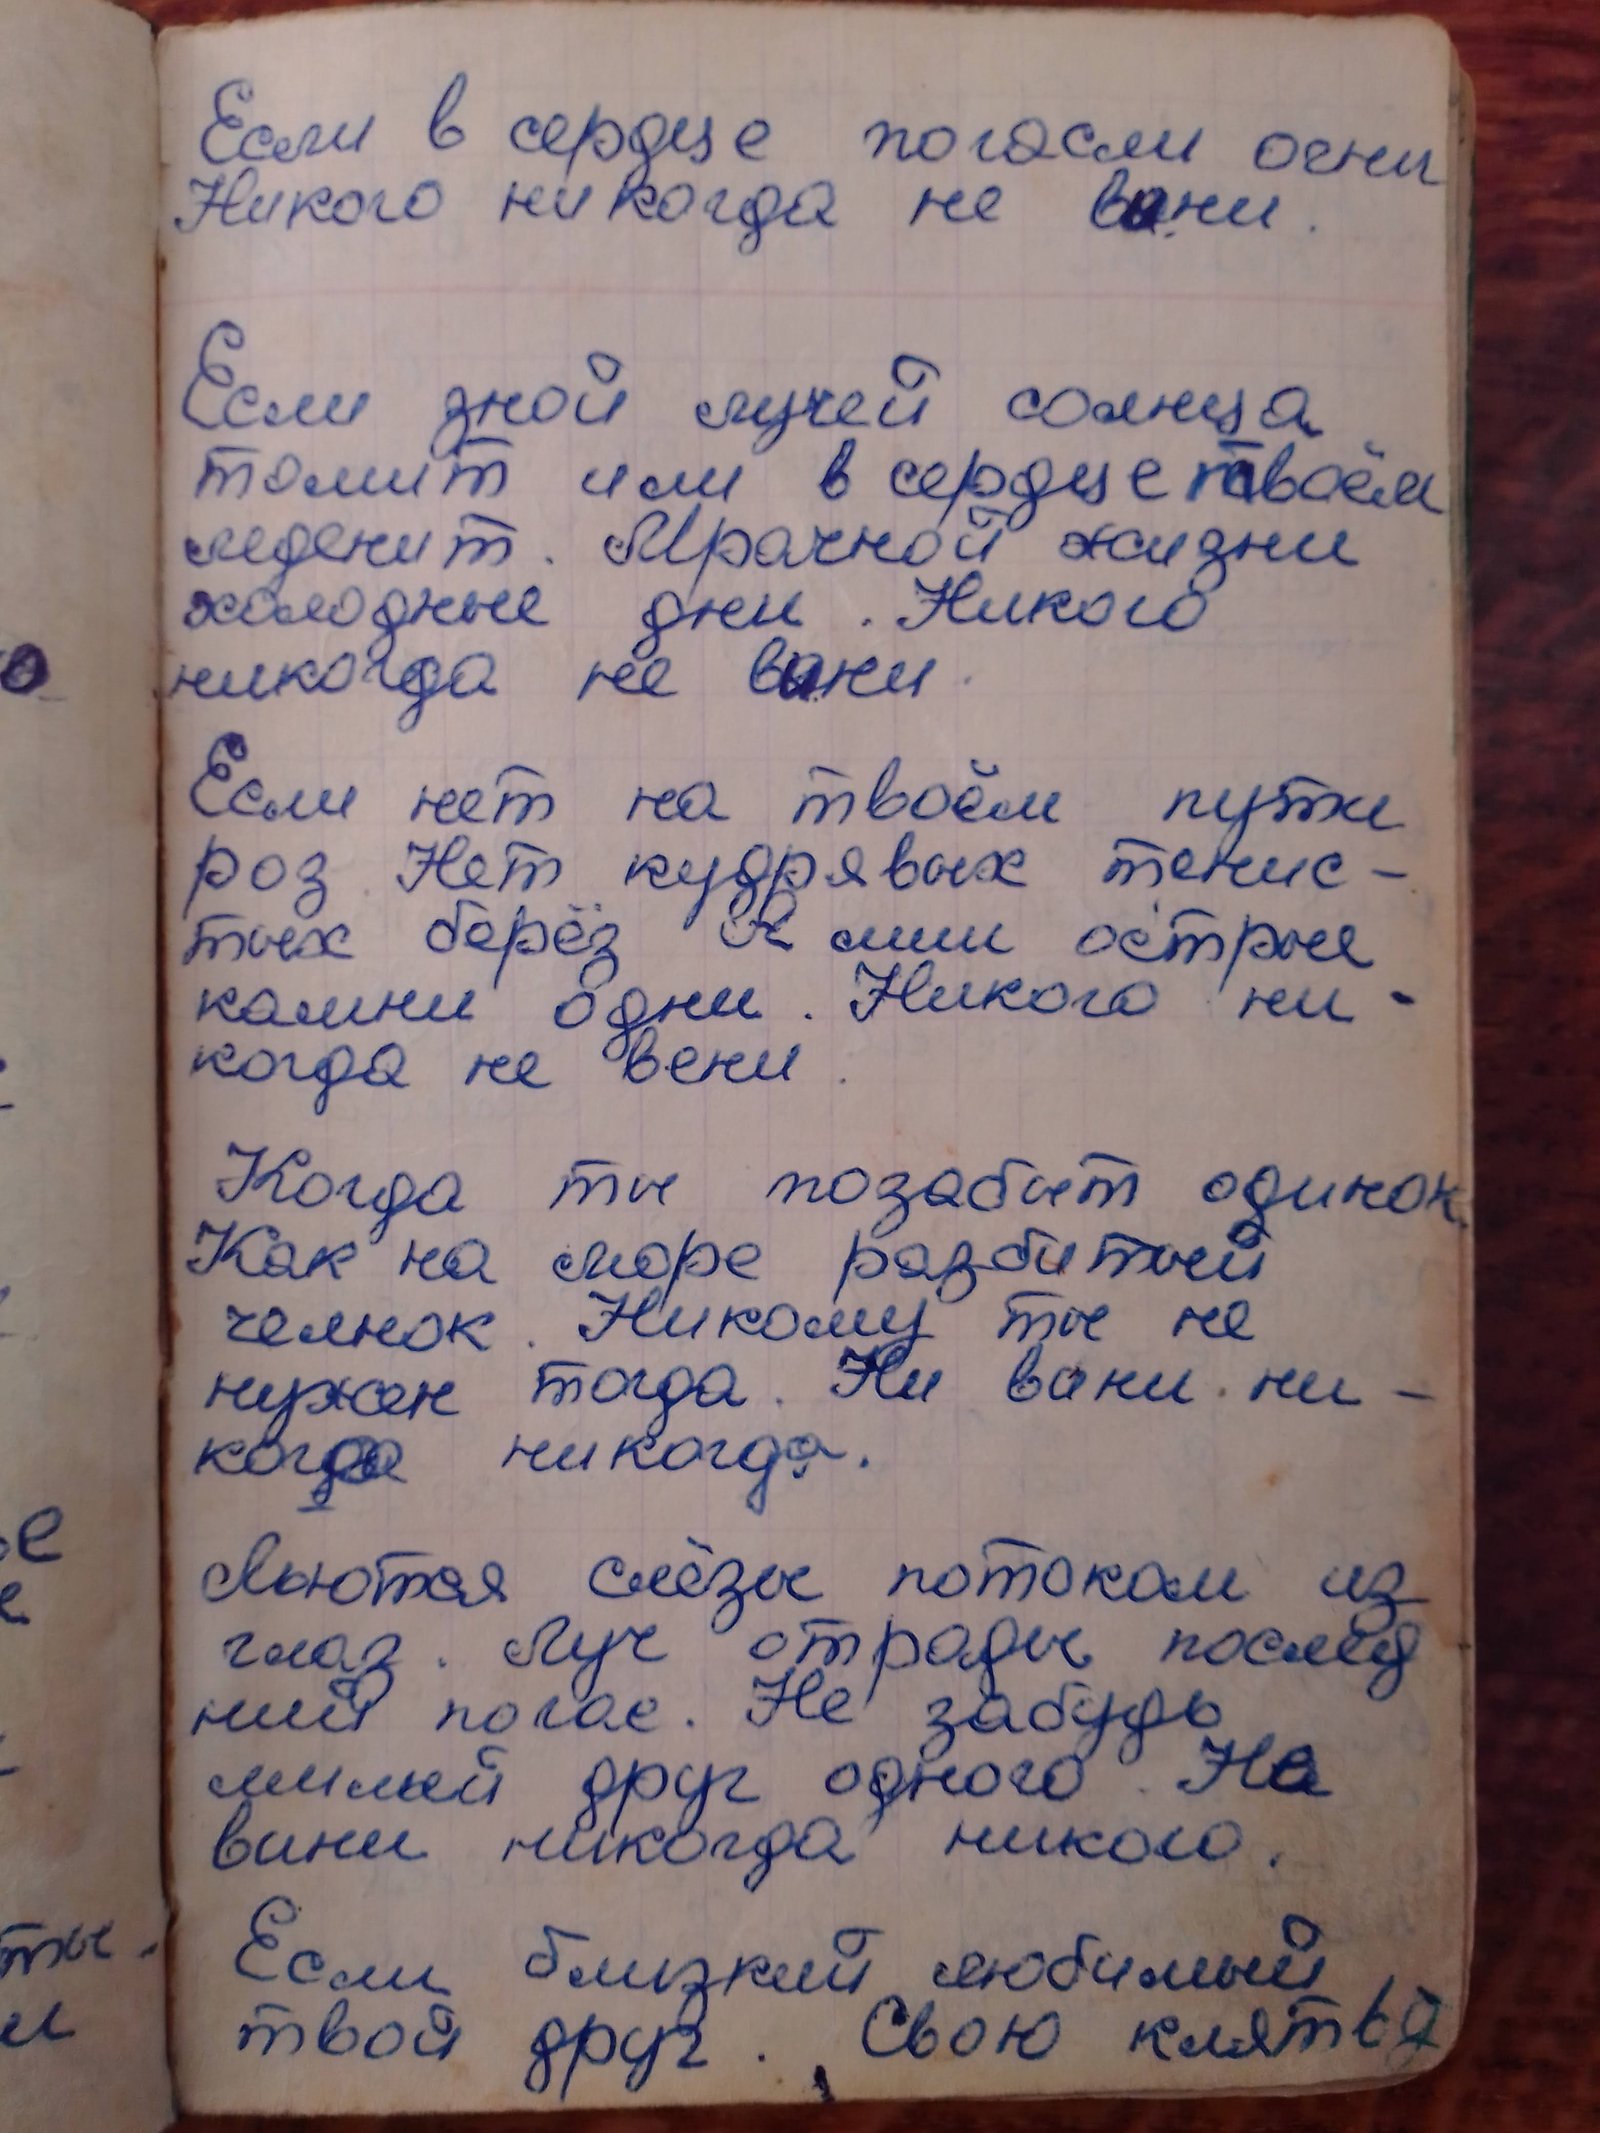 Если в сердце погасли огни
Никого никогда не вини.
Если зной лучей солнца
томит или в сердце твоём
леденит. Мрачной жизни
холодные дни. Никого
никогда не вини.
Если нет на твоём пути
роз. Нет кудрявых тенис-
тых берёз лиш острые
камни одни. Никого ни-
когда не вени.
Когда ты позабыт одинок.
Как на море разбитый
челнок. Никому ты не
нужен тогда. Ни вини ни-
когда никогда.
Льются слёзы потоком из
глаз. Луч отрады послед
ний погас. Не забудь
милый друг одного. Не
вини никогда никого.
Если близкий любимый
твой друг. Свою клятву
о
е
е
ты.
и